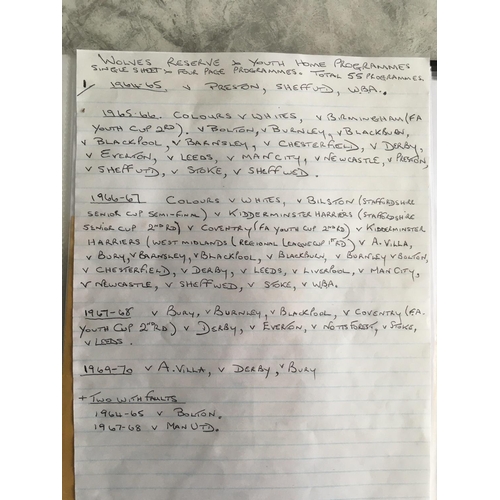 WOLVES RESERVE & YOUTH HOME PROGRAMMES
SINGLE SHEET & FOUR PAGE PROGRAMMES. TOTAL 55 PROGRAMMES.
1964-65 V PRESTON, SHEFF UTD, WBA.
1965-66. COLOURS V WHITES, V BIRMINGHAM (FA
YOUTH CUP 2RD). V BOLTON, V BURNLEY, V BLACKBURN,
V BLACKPOOL, V BARNSLEY, V CHESTERFIELD, V DERBY,
V EVERTON, V LEEDS, V MAN CITY, V NEWCASTLE, V PRESTON,
V SHEFF UTD, V STOKE, V SHEFF WED.
1966-67 COLOURS V WHITES, V BILSTON (STAFFORDSHIRE
SENIOR CUP SEMI-FINAL) V KIDDERMINSTER HARRIERS (STAFFORDSHIRE
SENIOR CUP 2ND RD) V COVENTRY (FA YOUTH CUP 2ND RD) V KIDDERMINSTER
HARRIERS (WEST MIDLANDS (REGIONAL LEAGUE CUP 1ST RD) V A. VILLA,
V BURY, V BARNSLEY, V BLACKPOOL, V BLACKBURN, V BURNLEY V BOLTON,
V CHESTERFIELD, V DERBY, V LEEDS, V LIVERPOOL, V MAN CITY,
V NEWCASTLE, V SHEFF WED, V STOKE, V WBA.
1967-68 V BURY, V BURNLEY, V BLACKPOOL, V COVENTRY (FA.
YOUTH CUP 2ND RD) V DERBY, V EVERTON, V NOTTS FOREST, V STOKE,
V LEEDS.
1969-70 V A. VILLA, V DERBY, V BURY
+ TWO WITH FAULTS
1964-65 V BOLTON.
1967-68 V MAN UTD.